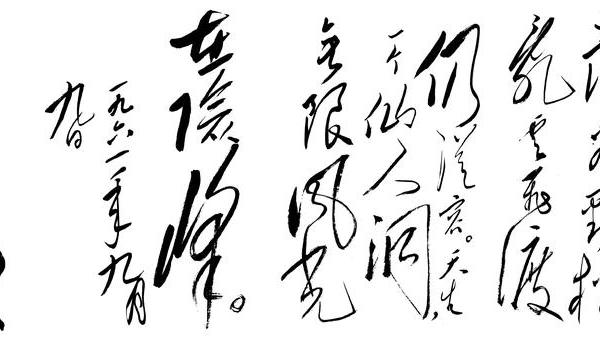 乱云飞渡
仍从容。天生
一个仙人洞，
无限风光
在险峰。
一九六一年九月
九日